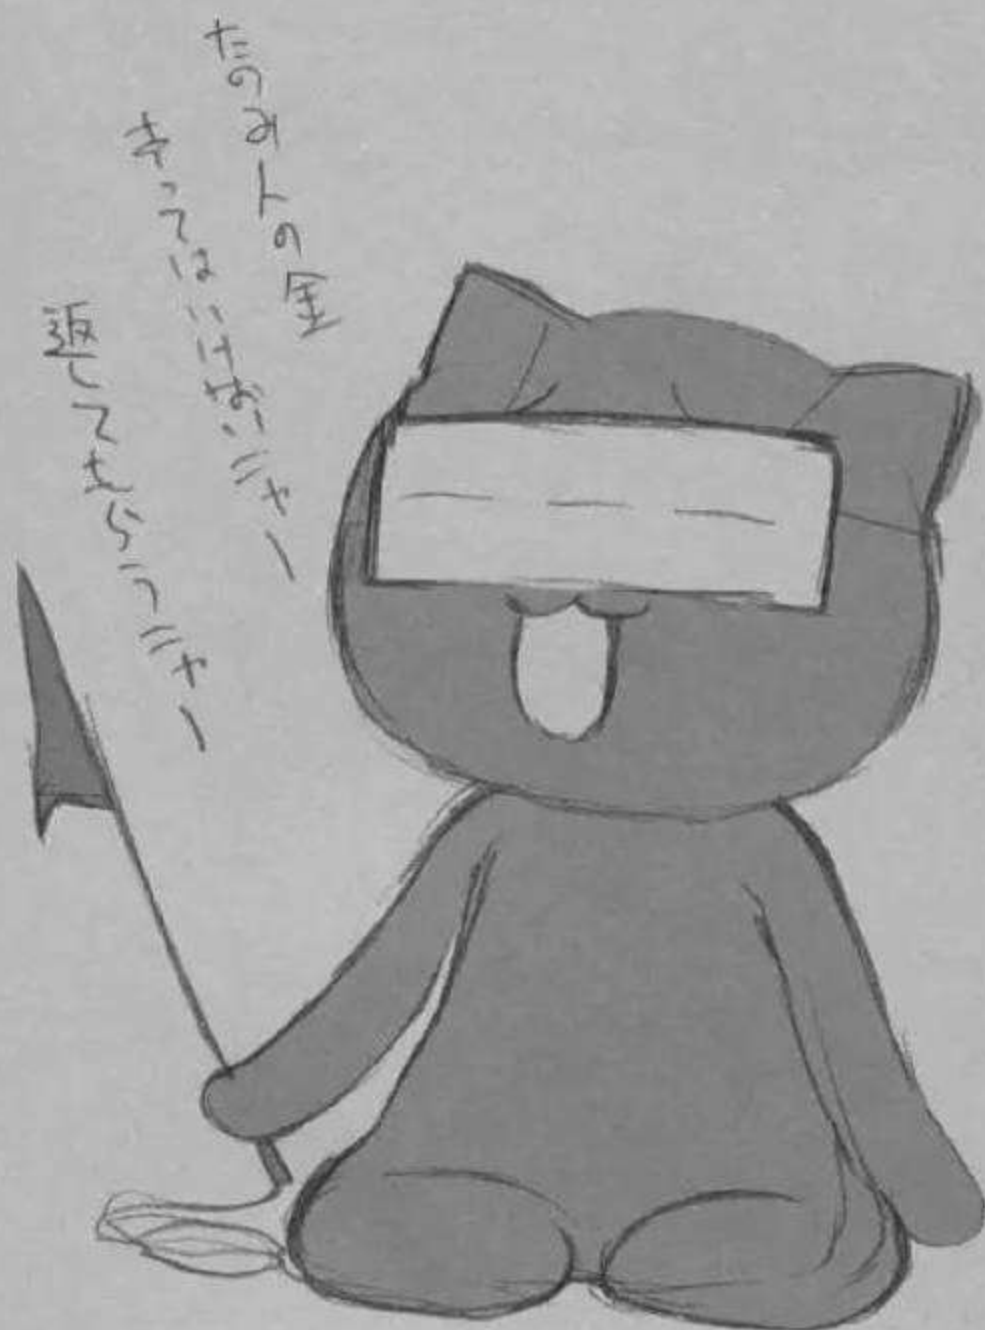 たのみ人の金
キってはいけないニャー
返してもらうニャー